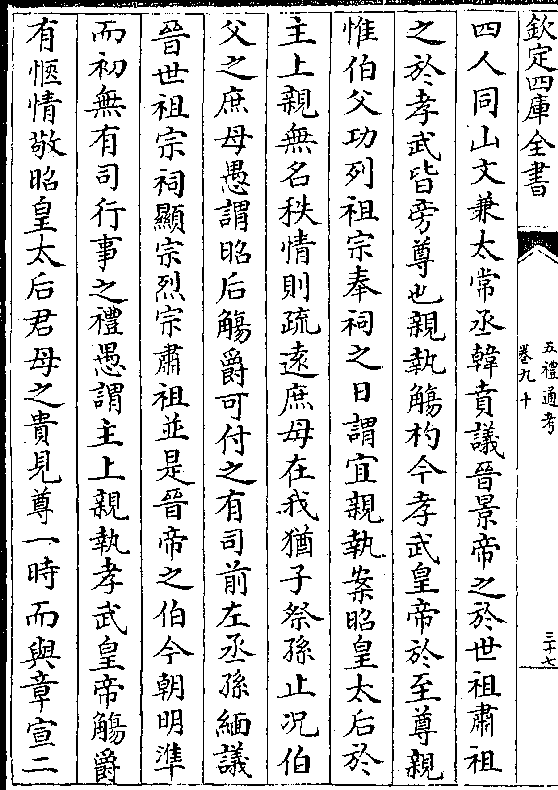 欽定四庫全書
五禮通考
卷九十
三十七
四人同山文兼太常丞韓賁議晉景帝之於世祖肅祖
之於孝武皆旁尊也親執觴杓今孝武皇帝於至尊親
惟伯父功列祖宗奉祠之日謂宜親執案昭皇太后於
主上親無名秩情則疏遠庶母在我猶子祭孫止况伯
父之庶母愚謂昭后觴爵可付之有司前左丞孫緬議
晉世祖宗祠顯宗烈宗肅祖並是晉帝之伯今朝明準
而初無有司行事之禮愚謂主上親執孝武皇帝觴爵
有愜情敬昭皇太后君母之貴見尊一時而與章宣二